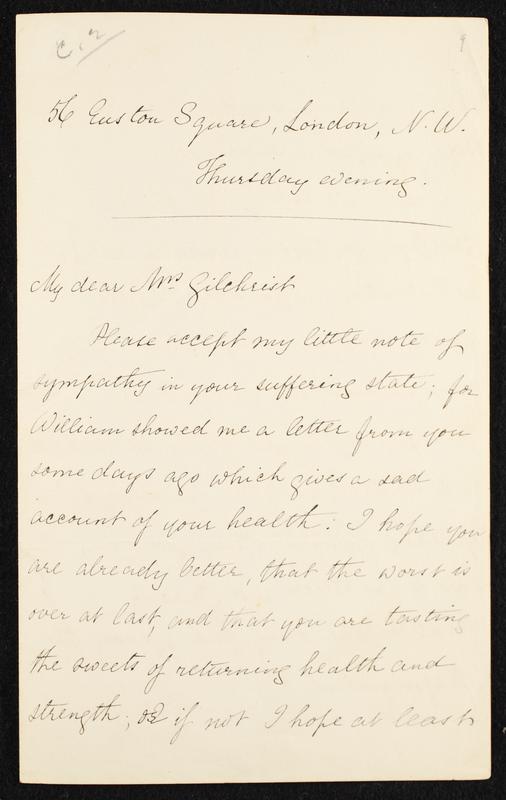 9
56 Euston Square, London, N.W.
Thursday evening.
My dear Mrs Gilchrist
Please accept my little note of
sympathy in your suffering state; for
William showed me a letter from you
some days ago which gives a sad
account of your health: I hope you
are already better, that the worst is
over at last, and that you are tasting
the sweets of returning health and
strength; or if not I hope at least